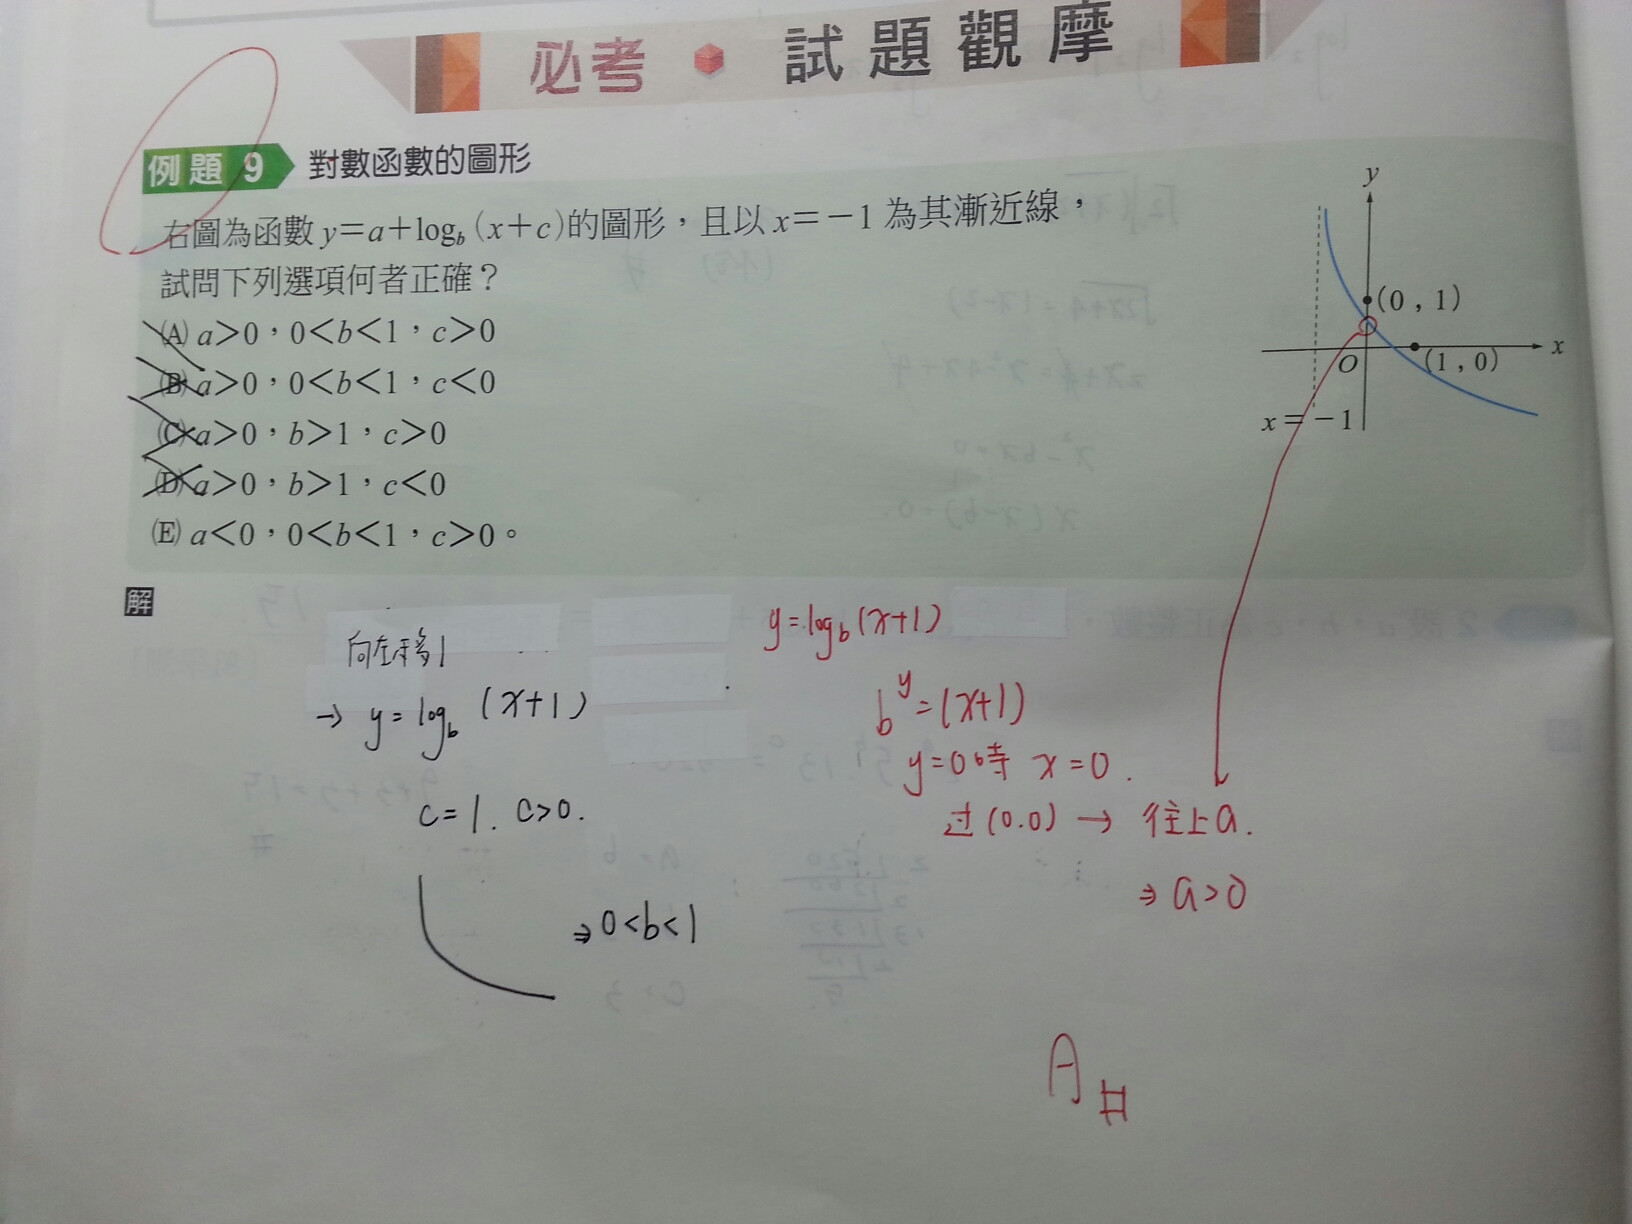 必考 試題觀摩
例題 9 對數函數的圖形
右圖為函數 y=a+log_b (x+c)的圖形，且以 x=−1 為其漸近線，
試問下列選項何者正確？
(A) a>0，0<b<1，c>0
(B) a>0，0<b<1，c<0
(C) a>0，b>1，c>0
(D) a>0，b>1，c<0
(E) a<0，0<b<1，c>0。
y
(0，1)
x
O
(1，0)
x=−1
解
向左移1
→ y=log_b (x+1)
c=1. c>0.
⇒ 0<b<1
y=log_b (x+1)
b^y=(x+1)
y=0時 x=0.
过(0.0) → 往上a.
⇒ a>0
A#